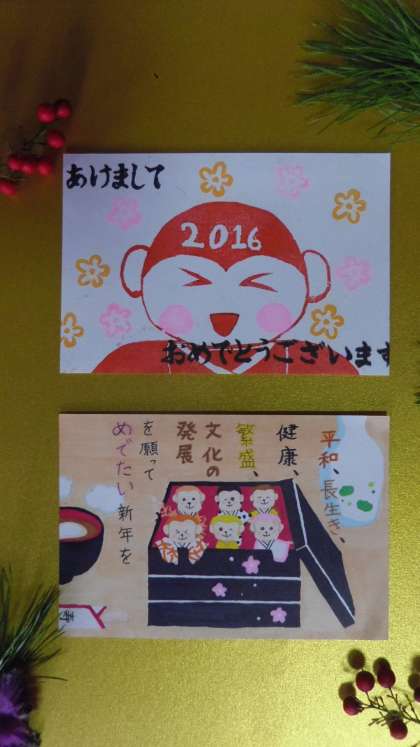 あけまして
2016
おめでとうございます
平和、長生き、
健康、
繁盛、
文化の
発展
を願って
めでたい新年を
寿